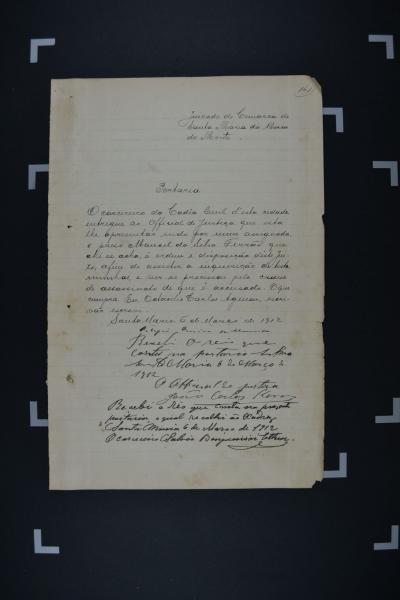 Juizado de Comarca de
Santa Maria da Bocca
do Monte.
Portaria
O carcereiro da Cadia Civil d'esta cidade
entregue ao Official de Justiça que esta
lhe apresentar, indo por mim assignada,
o preso Manoel da Silva Ferrão que
ahi se acha, á ordem e disposição deste Jui-
zo, afim de assistir a inquirição de teste-
munhas e ver se processar pelo crime
de assassinato de que é accusado. O que
cumpra. Eu Carlos Aguiar, escri-
vão escrevi.
Santa Maria 6 de Março de 1912
Recebi O reis que
consta na portaria
Sta Maria 6 de Março de
1912
O Official de justiça
João Carlos
Recebi o Réo que consta na presente
portaria, o qual recolhi ao Xadrez
Santa Maria 6 de Março de 1912
O carcereiro